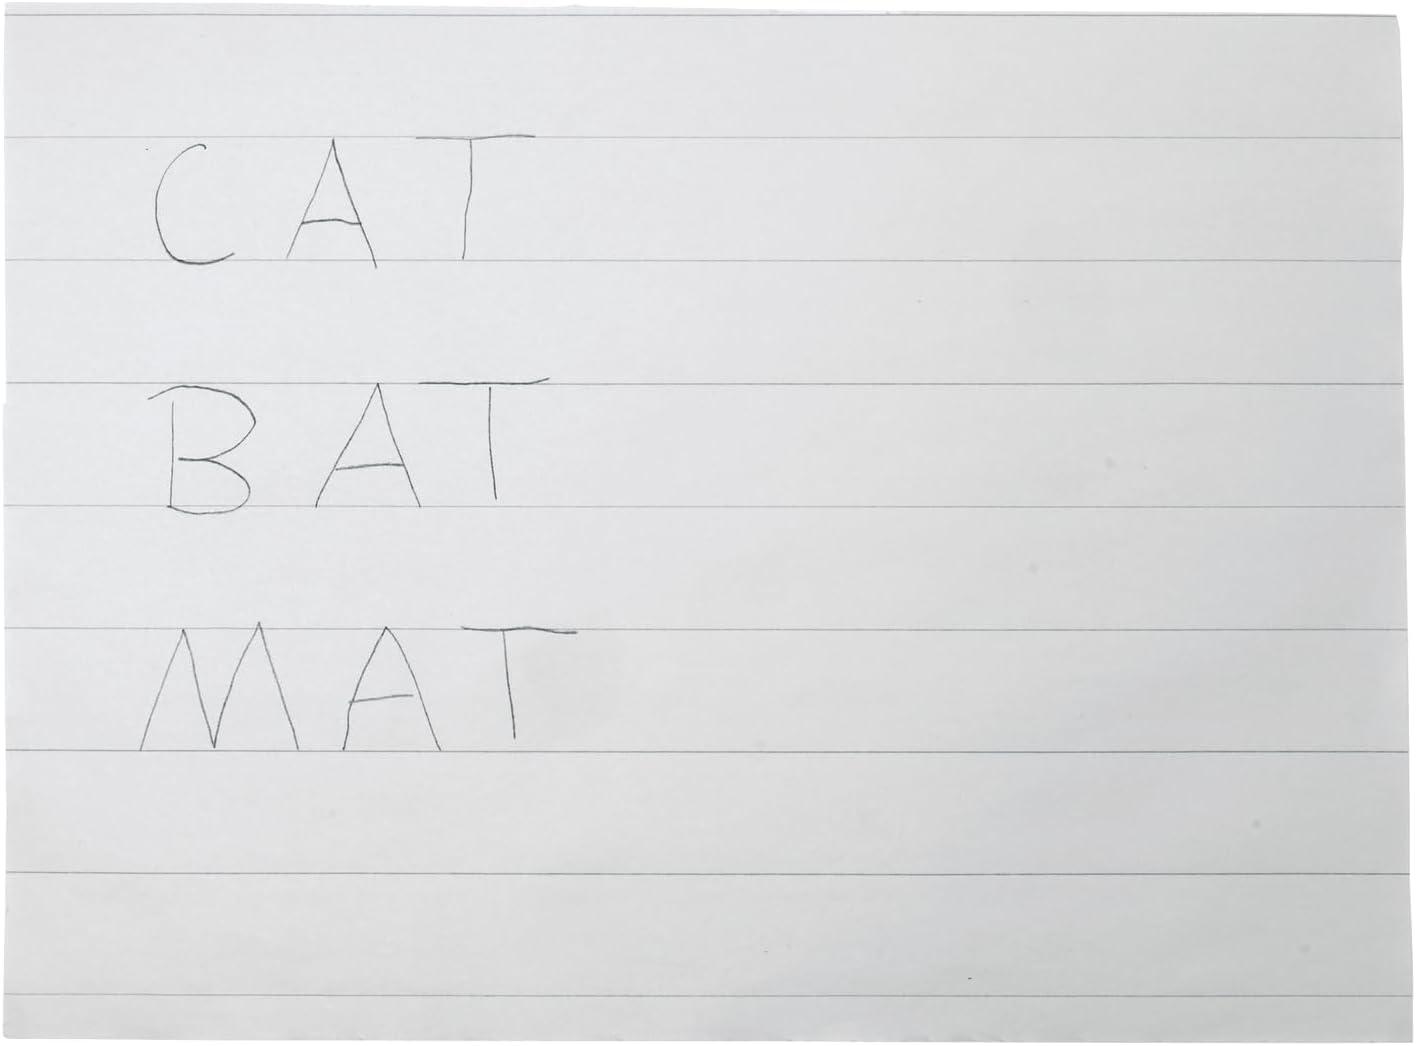 CAT
BAT
MAT